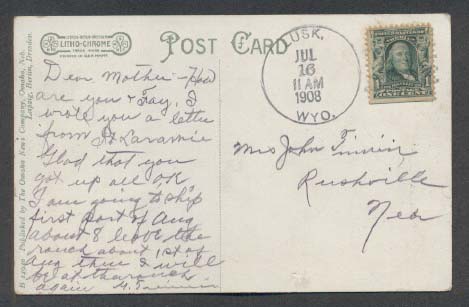 LITHO-CHROME
TRADE MARK
POST CARD
B 14948 Published by The Omaha News Company, Omaha, Neb.
Leipzig, Berlin, Dresden.
LUSK,
JUL
16
11 AM
1908
WYO.
ONE CENT
Dear Mother - How
are you & Fay, I
wrote you a letter
from Ft Laramie
Glad that you
got up all OK
I am going to ship
first part of Aug
about 8 leave the
ranch about 1st of
Aug then I will
be at the ranch
again
Mrs John
Rushville
Nebr